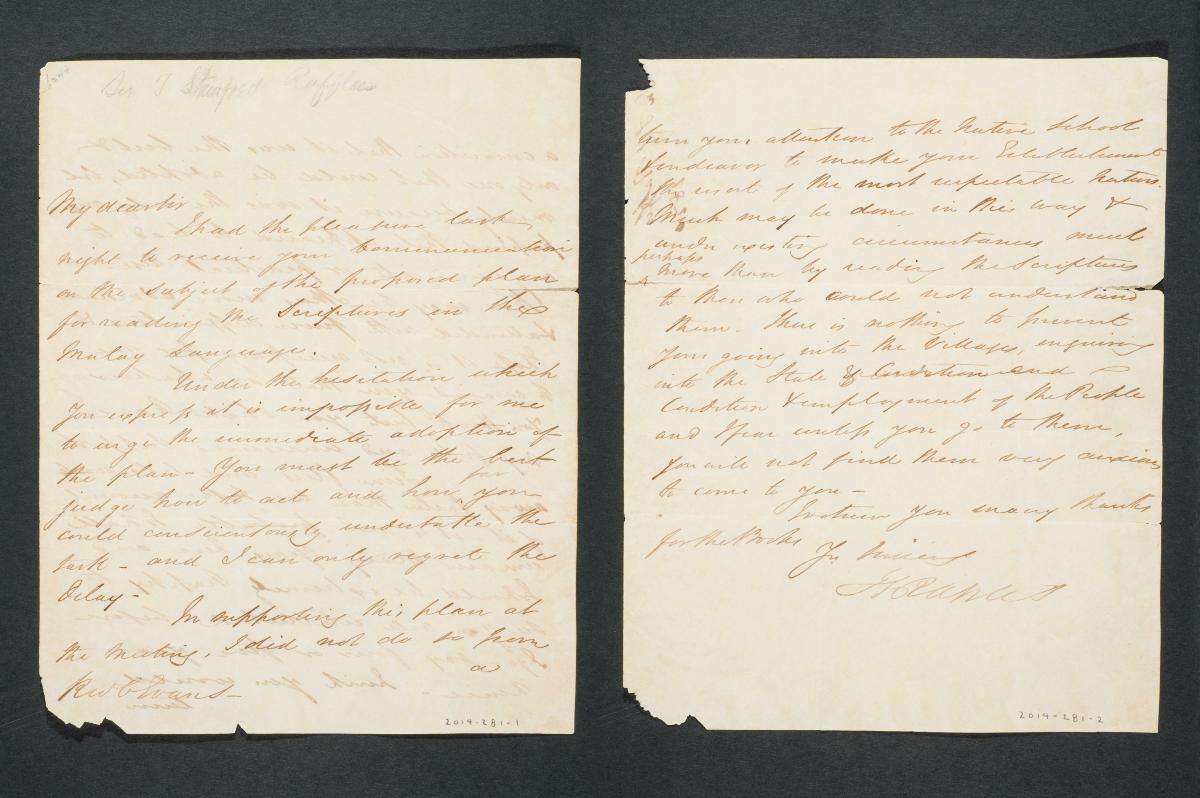 Sir T Stamford Raffles
My dear Sir
I had the pleasure last
night to receive your Communication
on the subject of the proposed plan
for reading the Scriptures in the
Malay Language.
Under the hesitation which
you express it is impossible for me
to urge the immediate adoption of
the plan - You must be the best
judge how to act and how you
could conscientously undertake the
task - and I can only regret the
delay -
In supporting this plan at
the meeting, I did not do so from
a
Revd C Evans -
2014-281-1
turn your attention to the Native School
& endeavor to make your Establishment
the resort of the most respectable Natives.
Much may be done in this way &
under existing circumstances much
perhaps
more than by reading the Scriptures
to them who could not understand
them - There is nothing to prevent
your going into the Villages, inquiring
into the State &
Condition & employment of the People
and I fear unless you go to them,
you will not find them very anxious
to come to you -
I return you many thanks
for the Books
Yrs Sincerely
TSRaffles
2014-281-2